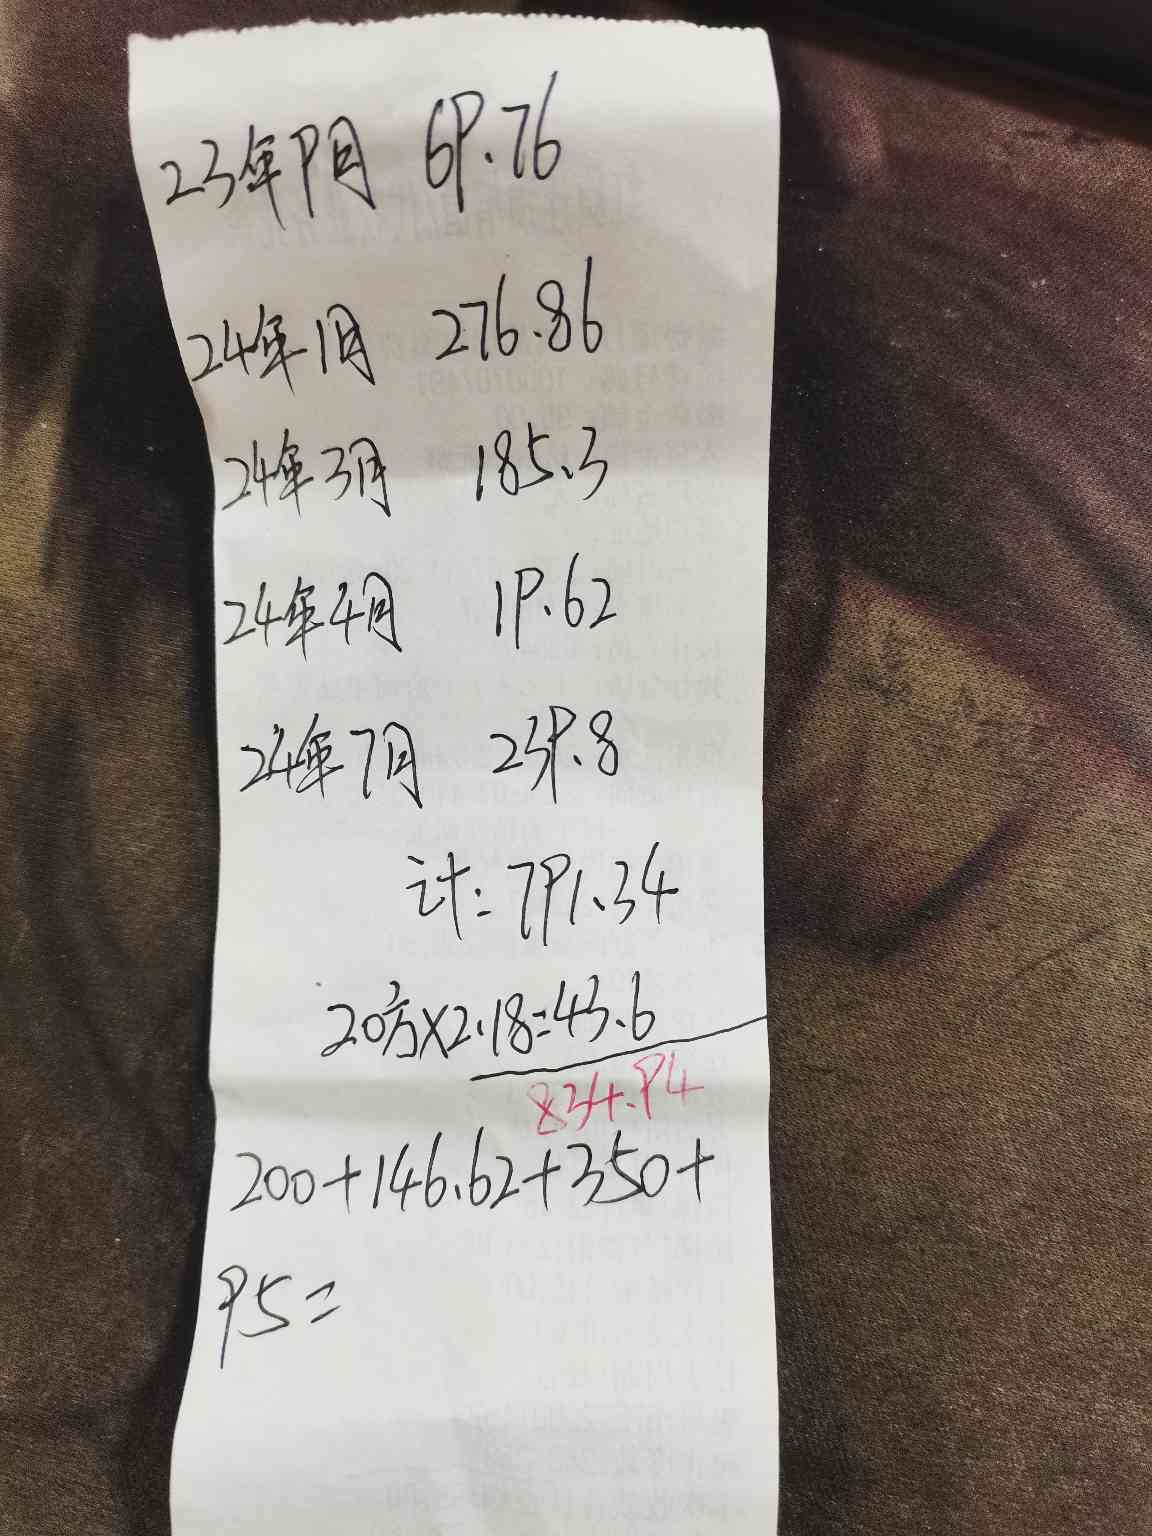 23年9月 69.76
24年1月 276.86
24年3月 185.3
24年4月 19.62
24年7月 239.8
计:791.34
20方×2.18=43.6
834.94
200+146.62+350+
95=